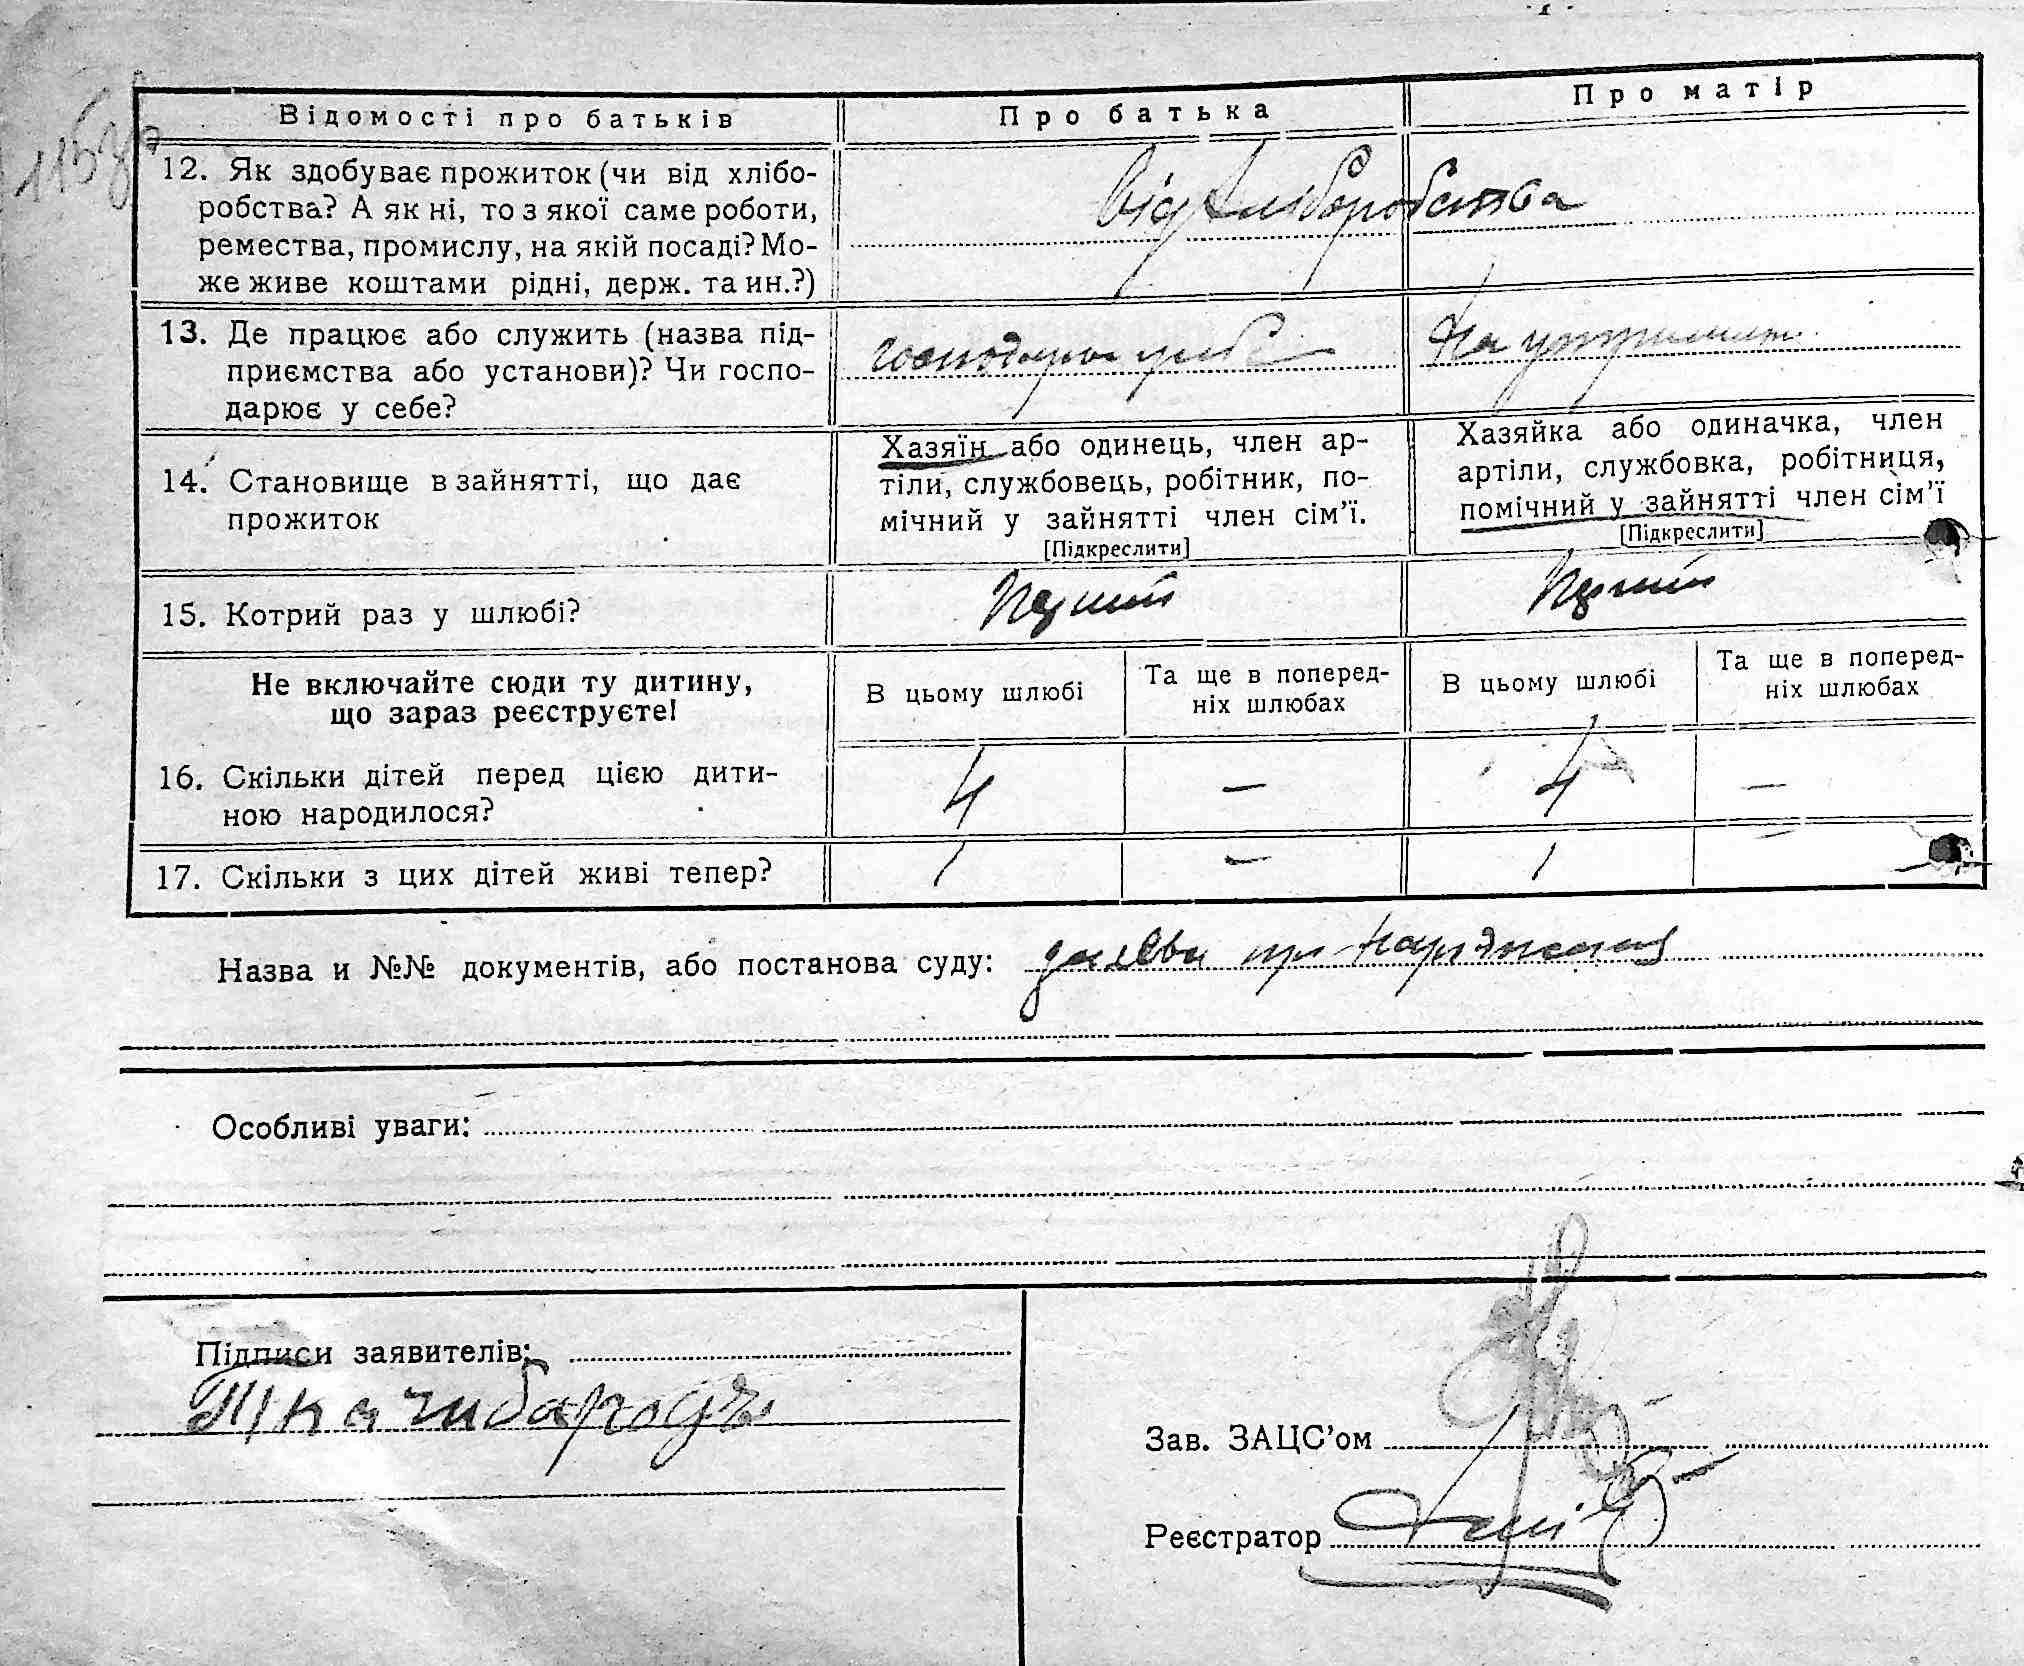 Відомості про батьків
Про батька
Про матір
12. Як здобуває прожиток (чи від хлібо-
робства? А як ні, то з якої саме роботи,
ремества, промислу, на якій посаді? Мо-
же живе коштами рідні, держ. та ин.?)
Від хліборобства
13. Де працює або служить (назва під-
приємства або установи)? Чи госпо-
дарює у себе?
господарює у себе
На утриманні
14. Становище в зайнятті, що дає
прожиток
Хазяїн або одинець, член ар-
тіли, службовець, робітник, по-
мічний у зайнятті член сім'ї.
[Підкреслити]
Хазяйка або одиначка, член
артіли, службовка, робітниця,
помічний у зайнятті член сім'ї
[Підкреслити]
15. Котрий раз у шлюбі?
Перший
Перший
Не включайте сюди ту дитину,
що зараз реєструєте!
В цьому шлюбі
Та ще в поперед-
ніх шлюбах
В цьому шлюбі
Та ще в поперед-
ніх шлюбах
16. Скільки дітей перед цією дити-
ною народилося?
4 — 4 —
17. Скільки з цих дітей живі тепер?
1 — 1
Назва и №№ документів, або постанова суду:
Особливі уваги:
Підписи заявителів:
Ткачибародъ
Зав. ЗАЦС'ом
Реєстратор